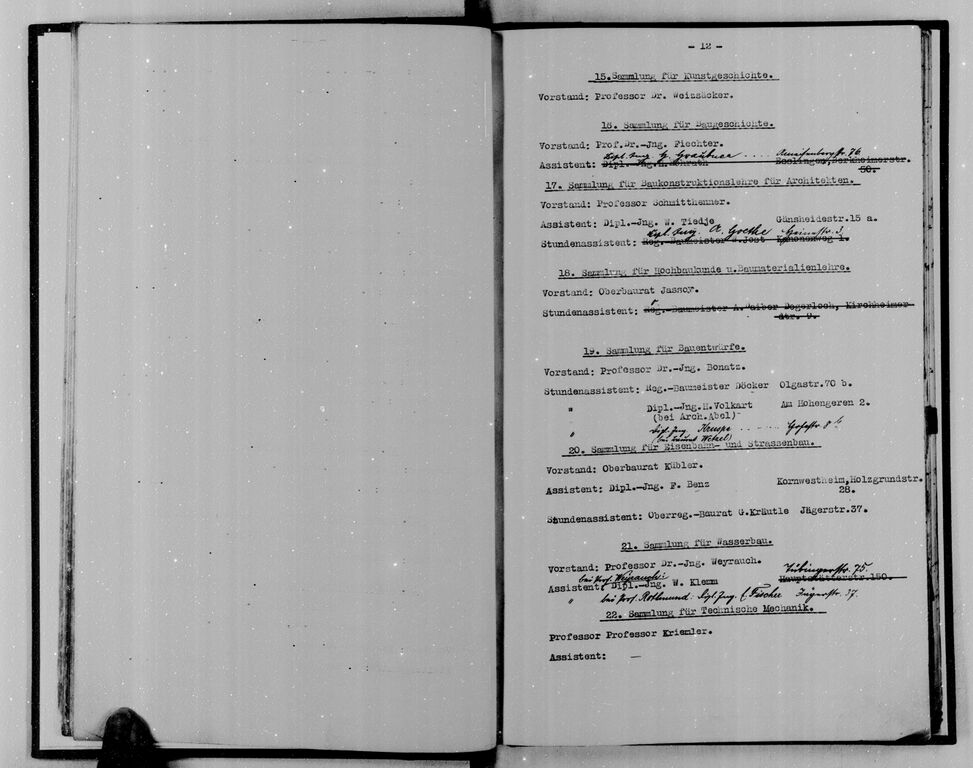 - 12 -
15. Sammlung für Kunstgeschichte.
Vorstand: Professor Dr. Weizsäcker.
16. Sammlung für Baugeschichte.
Vorstand: Prof.Dr.-Jng. Fiechter.
Dipl. Ing. G. Graubner ....
Assistent: Dipl.-Jng. Esslingen, Berkheimerstr.
50.
17. Sammlung für Baukonstruktionslehre für Architekten.
Vorstand: Professor Schmitthenner.
Assistent: Dipl.-Jng. W. Tiedje Gänsheidestr.15 a.
Dipl. Ing. A. Goethe
Stundenassistent: Reg.-Baumeister W.Jost
18. Sammlung für Hochbaukunde u.Baumaterialienlehre.
Vorstand: Oberbaurat Jassoy.
Stundenassistent: Reg.-Baumeister A.Daiber Degerloch, Kirchheimer
str. 9.
19. Sammlung für Bauentwürfe.
Vorstand: Professor Dr.-Jng. Bonatz.
Stundenassistent: Reg.-Baumeister Döcker Olgastr.70 b.
" Dipl.-Jng.H.Volkart Am Hohengeren 2.
(bei Arch.Abel)
" Dipl. Ing. Kruspe
(bei Baurat Wetzel)
20. Sammlung für Eisenbahn- und Strassenbau.
Vorstand: Oberbaurat Kübler.
Assistent: Dipl.-Jng. F. Benz Kornwestheim,Holzgrundstr.
28.
Stundenassistent: Oberreg.-Baurat G.Kräutle Jägerstr.37.
21. Sammlung für Wasserbau.
Vorstand: Professor Dr.-Jng. Weyrauch.
bei Prof. Weyrauch: Tübingerstr. 75
Assistent: Dipl.-Jng. W. Klemm Hauptstätterstr.150.
" bei Prof. Rothmund: Dipl. Ing. E. Fischer Jägerstr. 37.
22. Sammlung für Technische Mechanik.
Professor Professor Kriemler.
Assistent: —